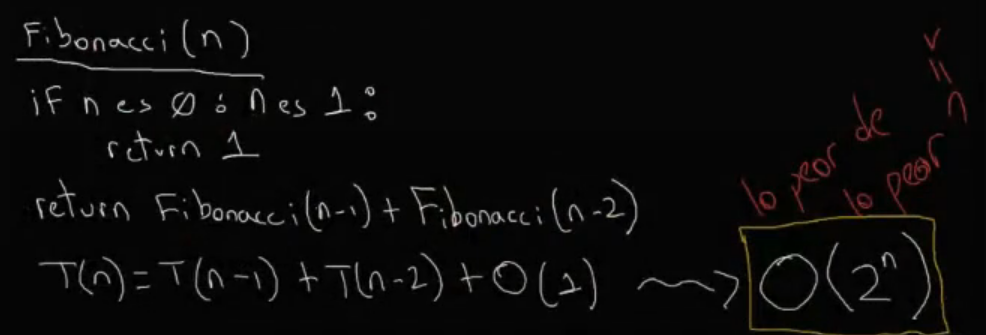 Fibonacci(n)
if n es 0 ó n es 1:
return 1
return Fibonacci(n-1) + Fibonacci(n-2)
T(n) = T(n-1) + T(n-2) + O(1) ⟿ O(2ⁿ)
lo peor de
lo peor